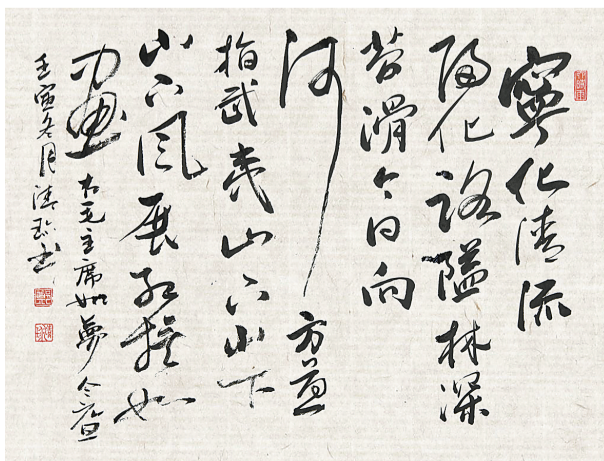 寧化清流
歸化路隘林深
苔滑今日向
何方直
指武夷山下山下
山下風展紅旗如
畫 右毛主席如夢令元旦
壬寅冬月書